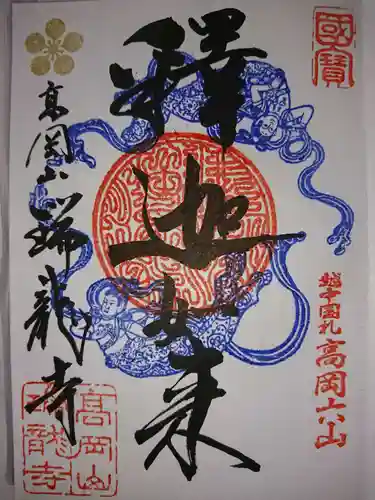 國寶
越中国札 高岡山
釋迦如来
高岡山 瑞龍寺
高岡山
瑞龍寺